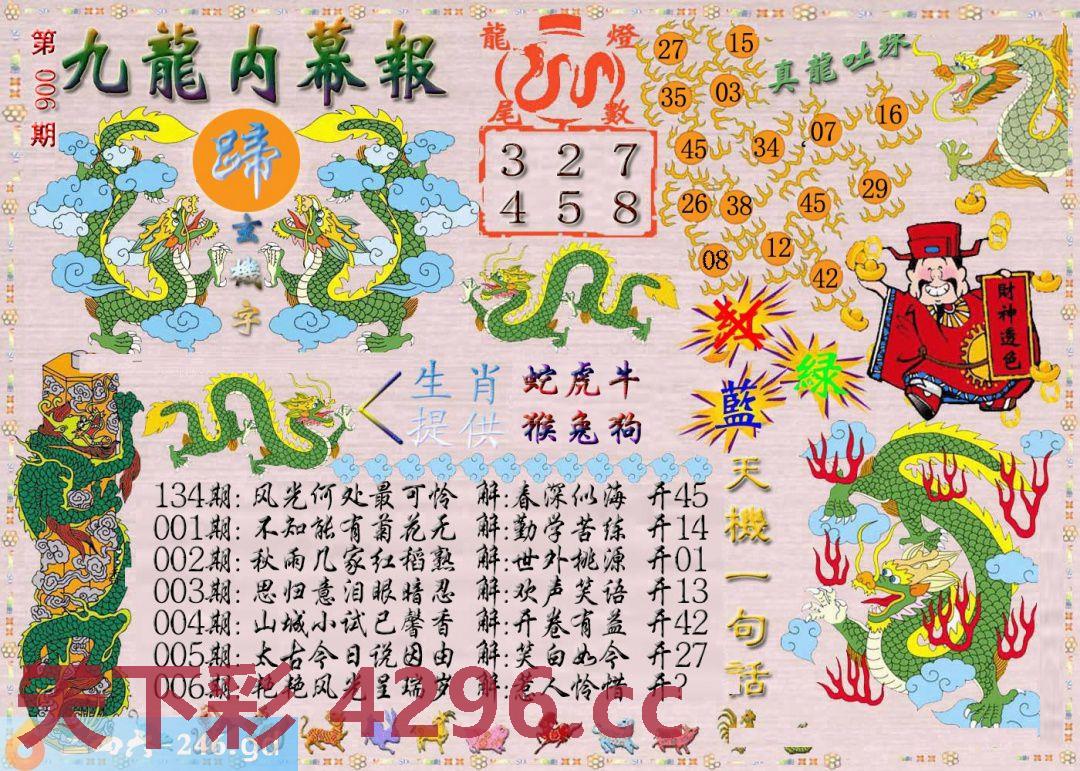 第006期
九龍内幕報
蹄
玄機字
龍燈
尾數
3 2 7
4 5 8
真龍吐珠
27 15
35 03
16
07
45 34
29
26 38 45
12
08 42
財神透色
红
綠
藍
生肖 蛇虎牛
提供 猴兔狗
天機一句話
134期: 风光何处最可怜 解:春深似海 开45
001期: 不知能有菊花无 解:勤学苦练 开14
002期: 秋雨几家红稻熟 解:世外桃源 开01
003期: 思归意泪眼暗忍 解:欢声笑语 开13
004期: 山城小试已馨香 解:开卷有益 开42
005期: 太古今日说因由 解:笑白如今 开27
006期: 艳艳风光呈瑞岁 解:惹人怜惜 开?
天下彩 4296.cc
=246.gd